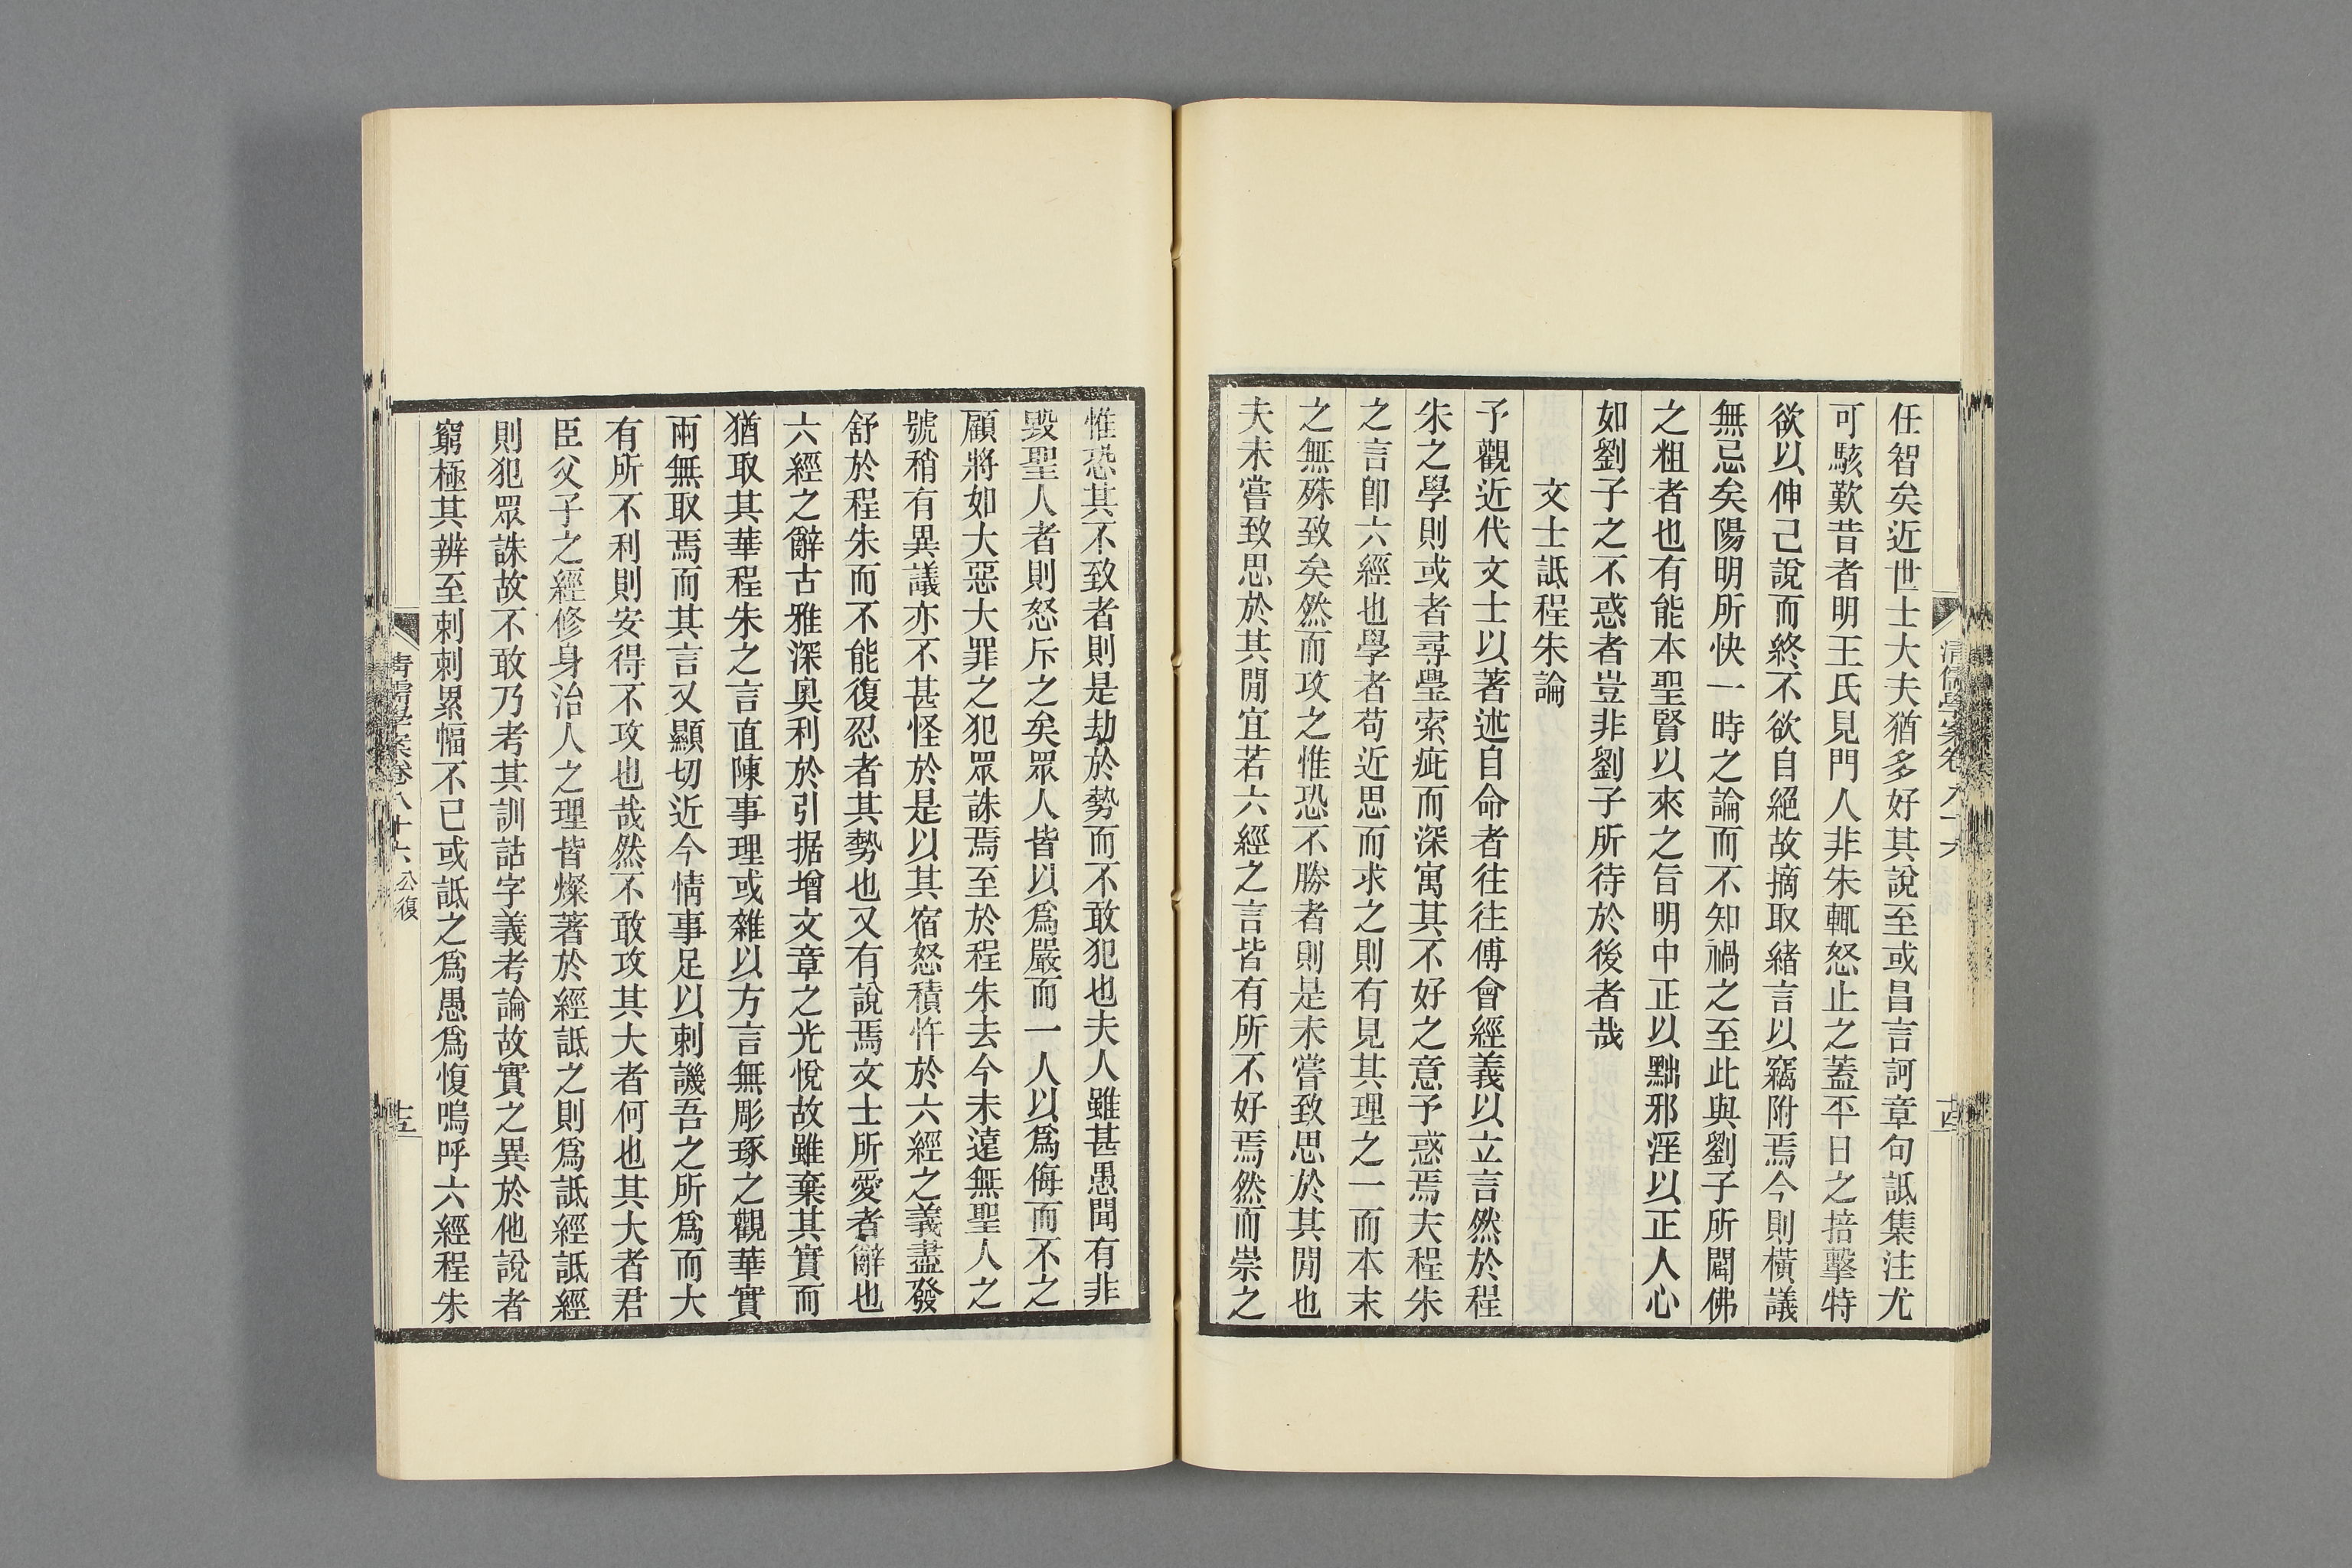 任智矣近世士大夫猶多好其說至或昌言訶章句詆集注尤
可駭歎昔者明王氏見門人非朱輒怒止之蓋平日之掊擊特
欲以伸己說而終不欲自絕故摘取緒言以竊附焉今則橫議
無忌矣陽明所快一時之論而不知禍之至此與劉子所闢佛
之粗者也有能本聖賢以來之旨明中正以黜邪淫以正人心
如劉子之不惑者豈非劉子所待於後者哉
文士詆程朱論
予觀近代文士以著述自命者往往傅會經義以立言然於程
朱之學則或者尋舋索疵而深寓其不好之意予惑焉夫程朱
之言卽六經也學者苟近思而求之則有見其理之一而本末
之無殊致矣然而攻之惟恐不勝者則是未嘗致思於其閒也
夫未嘗致思於其閒宜若六經之言皆有所不好焉然而崇之
惟恐其不致者則是劫於勢而不敢犯也夫人雖甚愚聞有非
毀聖人者則怒斥之矣眾人皆以爲嚴而一人以爲侮而不之
顧將如大惡大罪之犯眾誅焉至於程朱去今未遠無聖人之
號稍有異議亦不甚怪於是以其宿怒積忤於六經之義盡發
舒於程朱而不能復忍者其勢也又有說焉文士所愛者辭也
六經之辭古雅深奥利於引据增文章之光悅故雖棄其實而
猶取其華程朱之言直陳事理或雜以方言無彫琢之觀華實
兩無取焉而其言又顯切近今情事足以刺譏吾之所爲而大
有所不利則安得不攻也哉然不敢攻其大者何也其大者君
臣父子之經修身治人之理皆燦著於經詆之則爲詆經詆經
則犯眾誅故不敢乃考其訓詁字義考論故實之異於他說者
窮極其辨至刺刺累幅不已或詆之爲愚爲愎嗚呼六經程朱
清儒學案卷八十六 公復